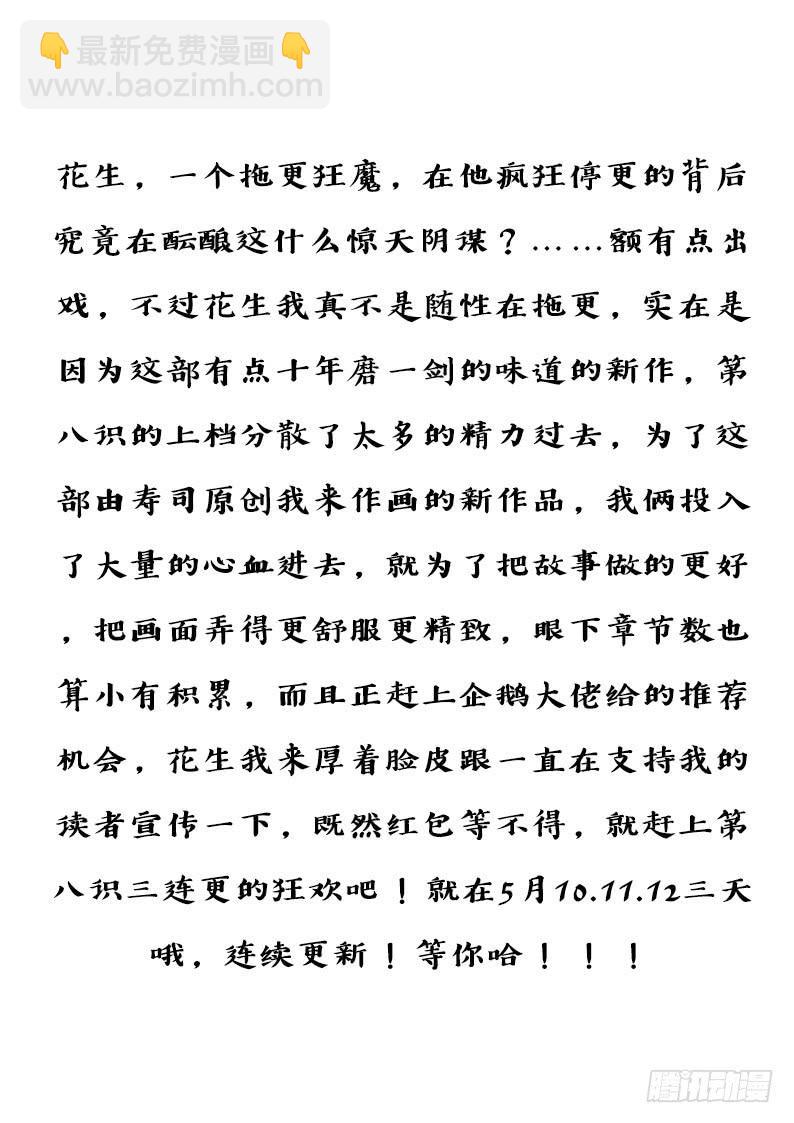 👇最新免费漫画👇
www.baozimh.com
花生，一个拖更狂魔，在他疯狂停更的背后
究竟在酝酿这什么惊天阴谋？……额有点出
戏，不过花生我真不是随性在拖更，实在是
因为这部有点十年磨一剑的味道的新作，第
八识的上档分散了太多的精力过去，为了这
部由寿司原创我来作画的新作品，我俩投入
了大量的心血进去，就为了把故事做的更好
，把画面弄得更舒服更精致，眼下章节数也
算小有积累，而且正赶上企鹅大佬给的推荐
机会，花生我来厚着脸皮跟一直在支持我的
读者宣传一下，既然红包等不得，就赶上第
八识三连更的狂欢吧！就在5月10.11.12三天
哦，连续更新！等你哈！！！
腾讯动漫